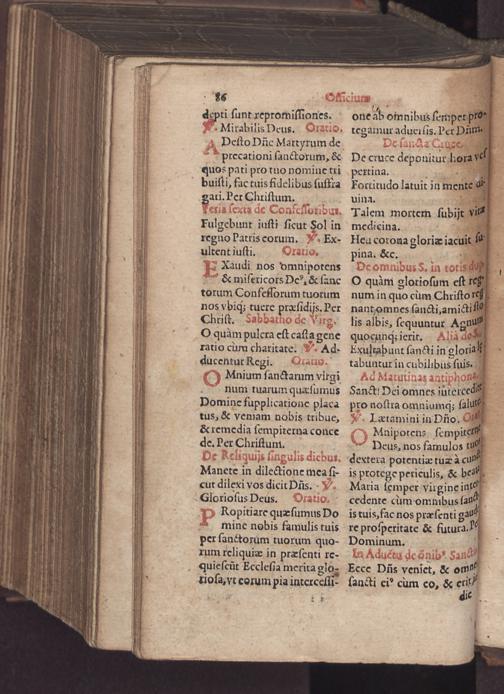 86 Officium
depti sunt repromissiones.
℣. Mirabilis Deus. Oratio.
ADesto Dñe Martyrum de
precationi sanctorum, &
quos pati pro tuo nomine tri
buisti, fac tuis fidelibus suffra
gari. Per Christum.
Feria sexta de Confessoribus.
Fulgebunt iusti sicut Sol in
regno Patris eorum. ℣. Ex-
ultent iusti. Oratio.
EXaudi nos omnipotens
& misericors De⁹, & sanc
torum Confessorum tuorum
nos vbiq; tuere præsidijs. Per
Christ. Sabbatho de Virg.
O quàm pulcra est casta gene
ratio cum charitate. ℣. Ad-
ducentur Regi. Oratio.
OMnium sanctarum virgi
num tuarum quæsumus
Domine supplicatione placa
tus, & veniam nobis tribue,
& remedia sempiterna conce
de. Per Christum.
De Reliquijs singulis diebus.
Manete in dilectione mea si-
cut dilexi vos dicit Dñs. ℣.
Gloriosus Deus. Oratio.
PRopitiare quæsumus Do
mine nobis famulis tuis
per sanctorum tuorum quo-
rum reliquiæ in præsenti re-
quiescũt Ecclesia merita glo-
riosa, vt eorum pia intercessi-
one ab omnibus semper pro-
tegamur aduersis. Per Dñm.
De sancta Cruce.
De cruce deponitur hora ves
pertina.
Fortitudo latuit in mente di-
uina.
Talem mortem subijt vitæ
medicina.
Heu corona gloriæ iacuit su-
pina. &c.
De omnibus S. in totis
O quàm gloriosum est reg-
num in quo cùm Christo reg
nant omnes sancti, amicti sto
lis albis, sequuntur Agnum
quocunq; ierit. Alia
Exultabunt sancti in gloria læ
tabuntur in cubilibus suis.
Ad Matutinas antiphona.
Sancti Dei omnes intercedite
pro nostra omniumq; salute.
℣. Lætamini in Dño.
OMnipotens sempiterne
Deus, nos famulos tuos
dextera potentiæ tuæ à cunct
is protege periculis, & beata
Maria semper virgine inter-
cedente cùm omnibus sanct
is tuis, fac nos præsenti gaude
re prosperitate & futura. Per
Dominum.
In Aduẽtu de õnib⁹ Sanctis
Ecce Dñs veniet, & omnes
sancti ei⁹ cùm eo, & erit in
die